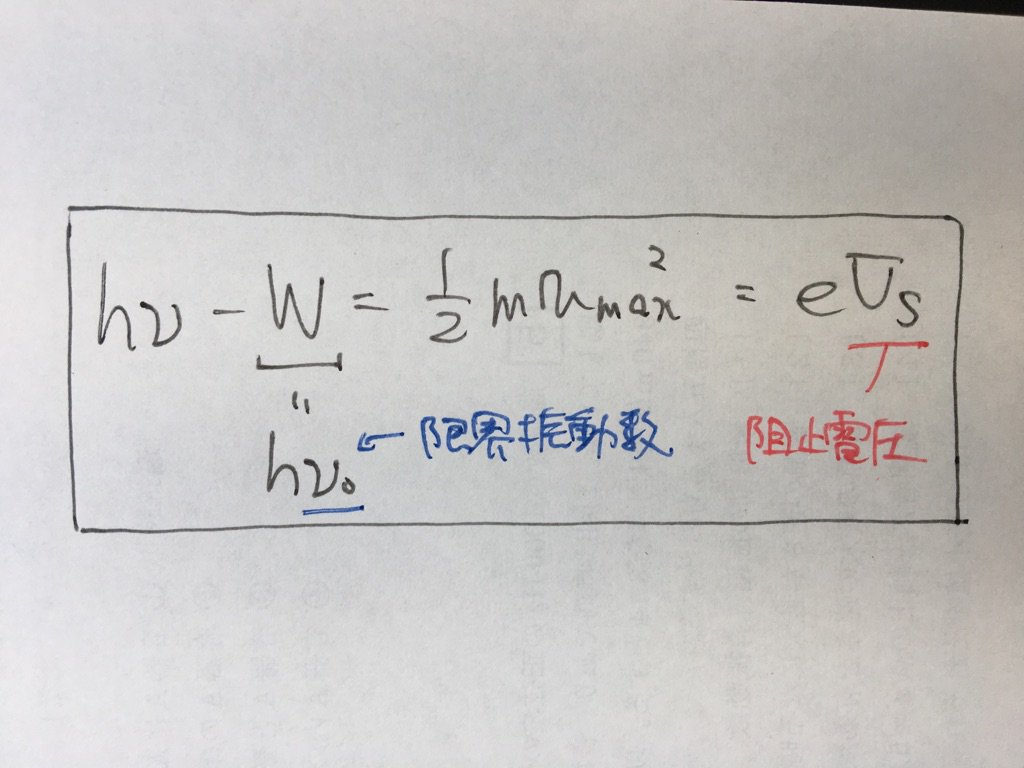 hν - W = 1/2 mv_max^2 = eV_s
"
hν₀ ← 限界振動数 阻止電圧